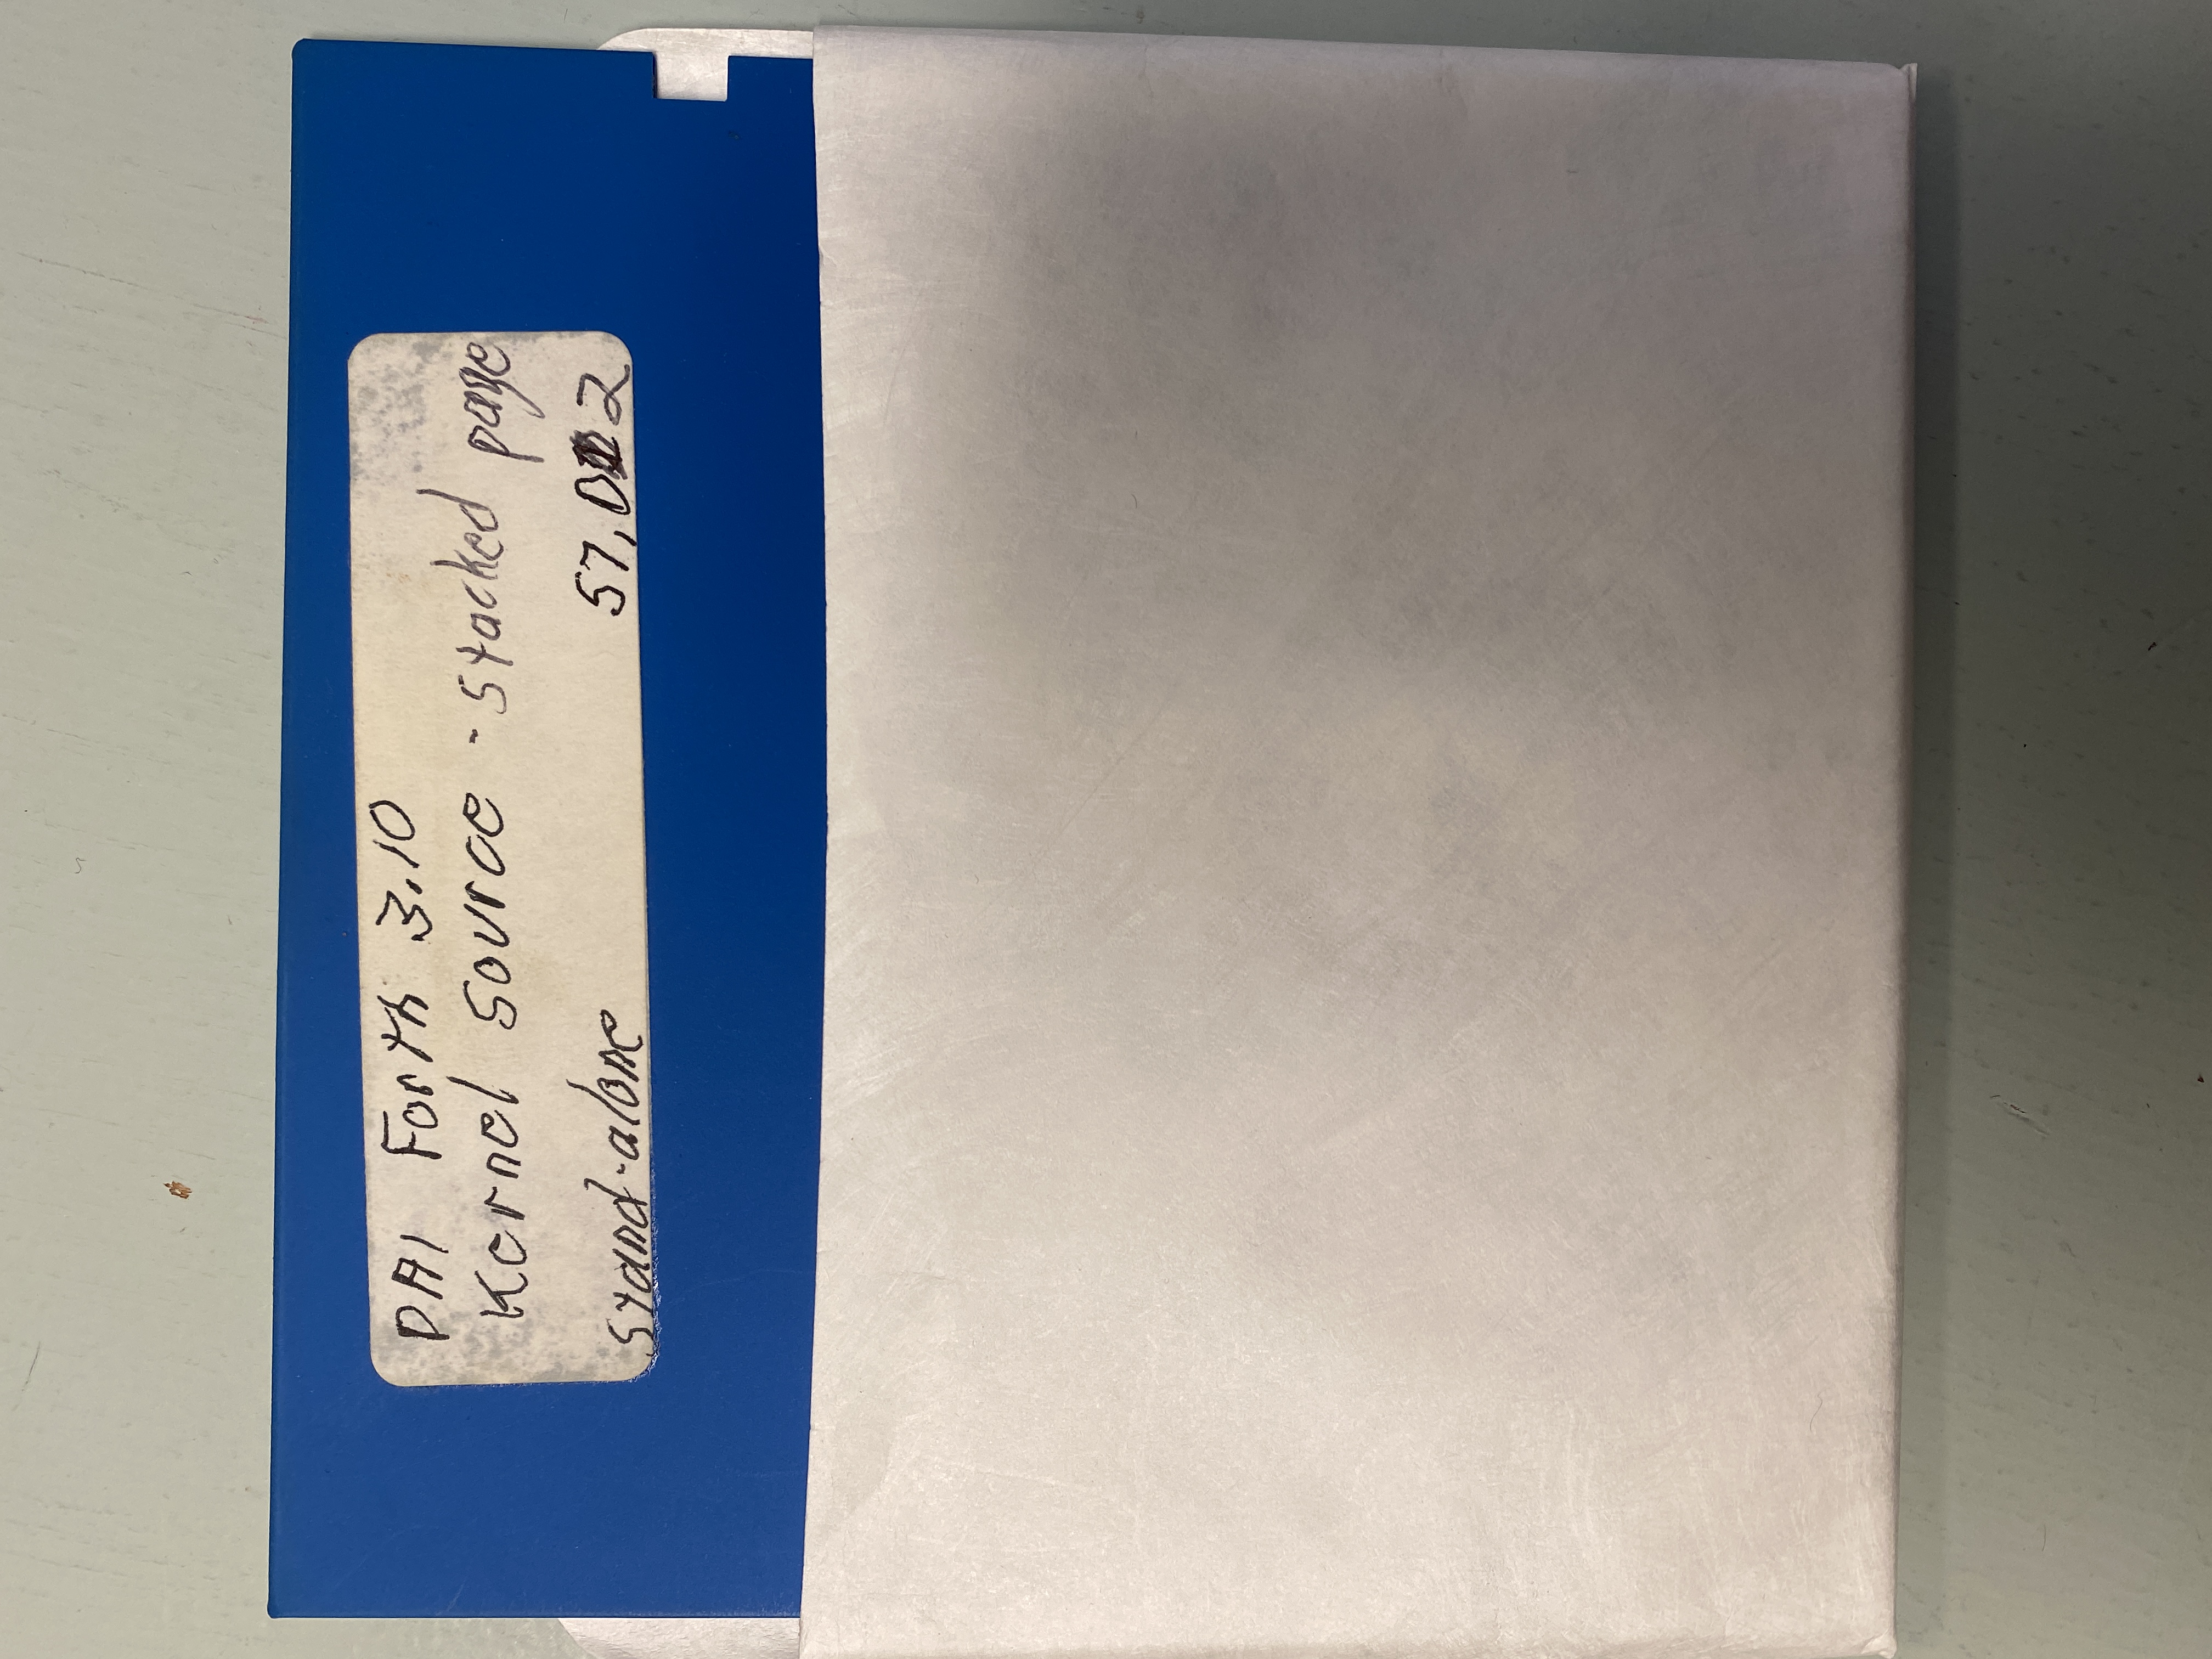 DAI Forth 3.10
Kernel Source - Stacked page
Stand-alone